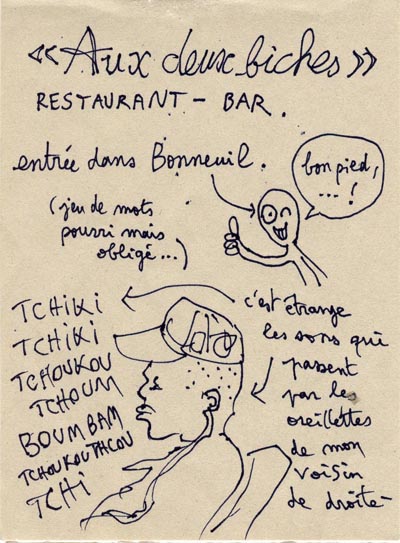 « Aux deux biches »
RESTAURANT - BAR.
entrée dans Bonneuil.
bon pied,
... !
(jeu de mots
pourri mais
obligé...)
TCHIKI
TCHIKI
TCHOUKOU
TCHOUM
BOUM BAM
TCHOUKOUTACOU
TCHI
c'est étrange
les sons qui
passent
par les
oreillettes
de mon
voisin
de droite-